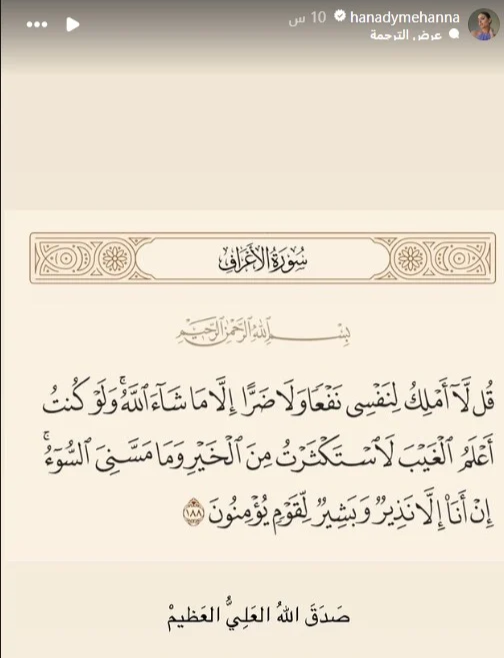 hanadymehanna 10 س
عرض الترجمة
سُورَةُ الأَعْرَافِ
بِسْمِ اللَّهِ الرَّحْمَٰنِ الرَّحِيمِ
قُل لَّآ أَمْلِكُ لِنَفْسِى نَفْعًا وَلَا ضَرًّا إِلَّا مَا شَآءَ ٱللَّهُ ۚ وَلَوْ كُنتُ
أَعْلَمُ ٱلْغَيْبَ لَٱسْتَكْثَرْتُ مِنَ ٱلْخَيْرِ وَمَا مَسَّنِىَ ٱلسُّوٓءُ ۚ
إِنْ أَنَا۠ إِلَّا نَذِيرٌ وَبَشِيرٌ لِّقَوْمٍ يُؤْمِنُونَ ١٨٨
صَدَقَ اللهُ العَلِيُّ العَظيمْ